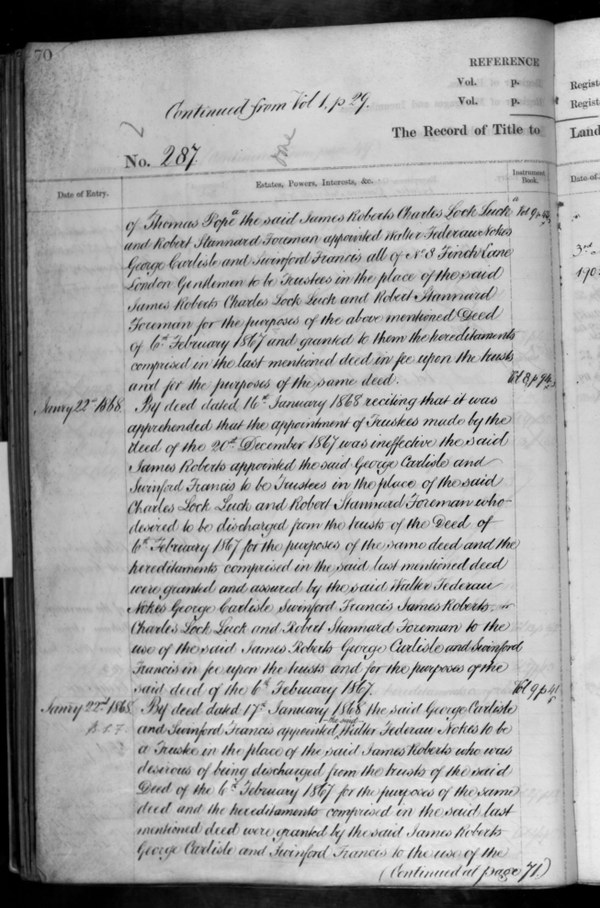 70
REFERENCE
Vol. p.
Continued from Vol 1. p 29. Vol. p.
The Record of Title to
No. 287
Date of Entry. Estates, Powers, Interests, &c. Instrument Book.
of Thomas Pope the said James Roberts Charles Lock Luck Vol 9 p
and Robert Stannard Foreman appointed Walter Federau Nokes
George Carlisle and Swinford Francis all of No 8 Finch Lane
London Gentlemen to be Trustees in the place of the said
James Roberts Charles Lock Luck and Robert Stannard
Foreman for the purposes of the above mentioned Deed
of 6th February 1867 and granted to them the hereditaments
comprised in the last mentioned deed in fee upon the trusts
and for the purposes of the same deed.
Janry 22nd 1868. By deed dated 16th January 1868 reciting that it was
apprehended that the appointment of Trustees made by the
deed of the 20th December 1867 was ineffective the said
James Roberts appointed the said George Carlisle and
Swinford Francis to be Trustees in the place of the said
Charles Lock Luck and Robert Stannard Foreman who
desired to be discharged from the trusts of the Deed of
6th February 1867 for the purposes of the same deed and the
hereditaments comprised in the said last mentioned deed
were granted and assured by the said Walter Federau
Nokes George Carlisle Swinford Francis James Roberts
Charles Lock Luck and Robert Stannard Foreman to the
use of the said James Roberts George Carlisle and Swinford
Francis in fee upon the trusts and for the purposes of the
said deed of the 6th February 1867. Vol 9 p 41
Janry 22nd 1868 By deed dated 17th January 1868 the said George Carlisle
and Swinford Francis appointed the said Walter Federau Nokes to be
a Trustee in the place of the said James Roberts who was
desirous of being discharged from the trusts of the said
Deed of the 6th February 1867 for the purposes of the same
deed and the hereditaments comprised in the said last
mentioned deed were granted by the said James Roberts
George Carlisle and Swinford Francis to the use of the
(Continued at page 71.)
Land
Date of